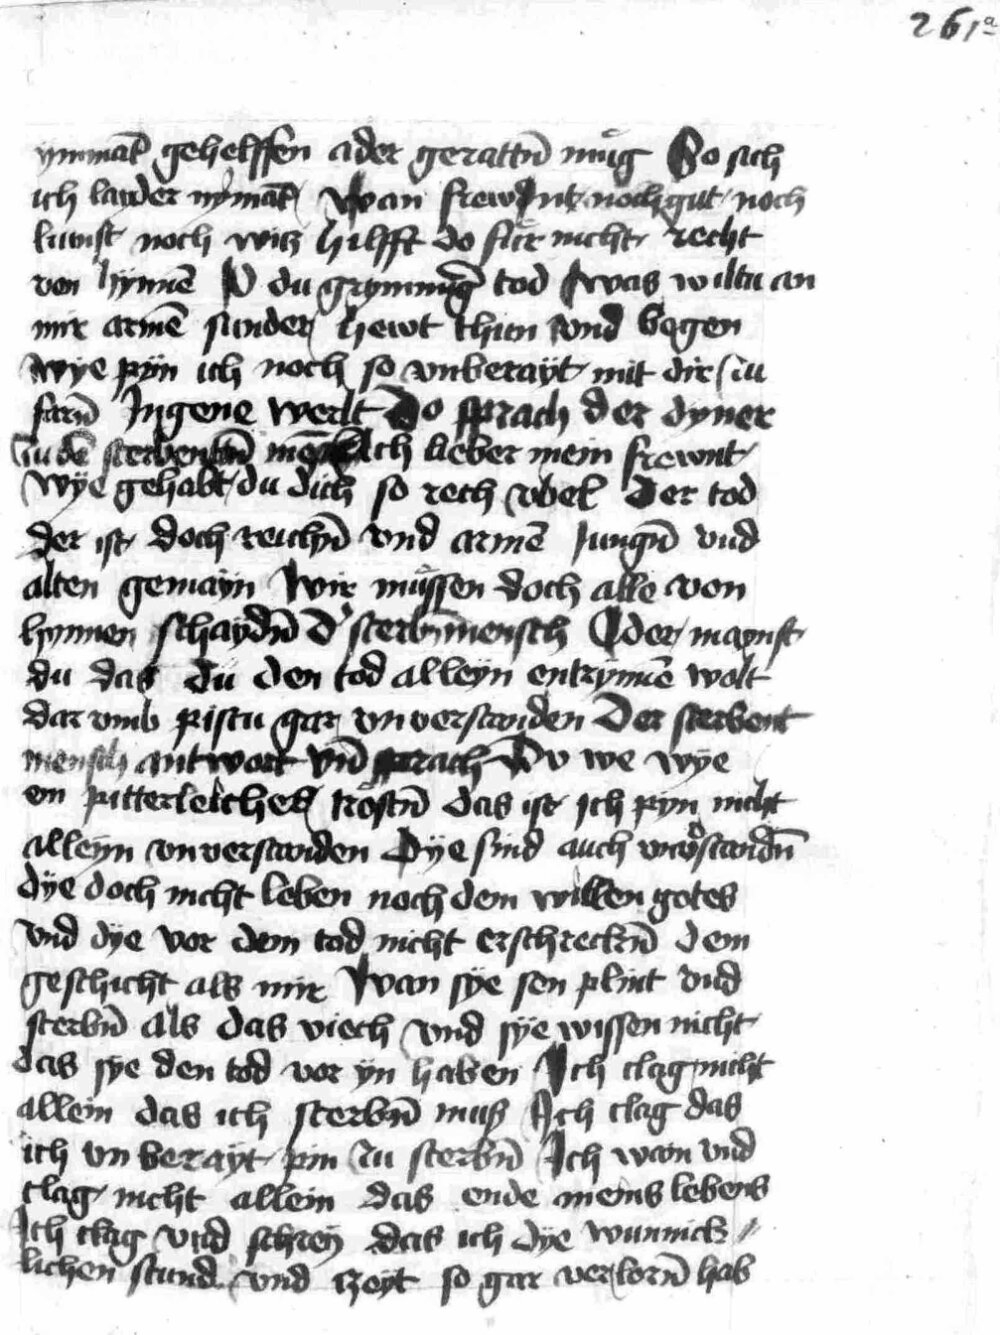 261a
ymmāt gehelffen ader gerattñ müg So sich
ich layder nymāt wan frewnt noch gut noch
kunst noch witz hilfft do für nicht recht
von hynnē O du grymmig tod was wiltu an
mir armē sunder hewt thun vnd begen
wÿe pÿn ich noch so vnberaÿt mit dir zu
farñ In gene werlt Do sprach der dyner
zu dē sterbentñ Ach lieber mein frewnt
wÿe gehabt du dich so rech vbel Der tod
der ist doch reichñ vnd armē Jungñ vnd
alten gemayn wir müssen doch alle von
hynnen schaydñ d' sterbñ mensch Oder maynst
du das du den tod alleyn entrynnē wolt
dar vmb pistu gar vnverstanden Der sterbent
mensch antwort vñd sprach Ov we wÿe
en pitterleiches tröstñ das ist ich pyn nicht
alleyn vnverstanden Dÿe sind auch vnv'standñ
dÿe doch nicht leben noch dem willen gotes
vnd dÿe vor dem tod nicht erschreckñ dem
geschicht als mir wan sÿe sen plint vnd
sterbñ als das viech vnd sÿe wissen nicht
das sye den tod vor yn haben Ich clag nicht
allein das ich sterbñ muß Ich clag das
ich vnberayt pin zu sterbñ Ich wan vnd
clag nicht allein das ende meins lebens
Ich clag vnd schreÿ das ich dÿe wunnick〃
lichen stund vnd czeyt so gar verlorñ hab